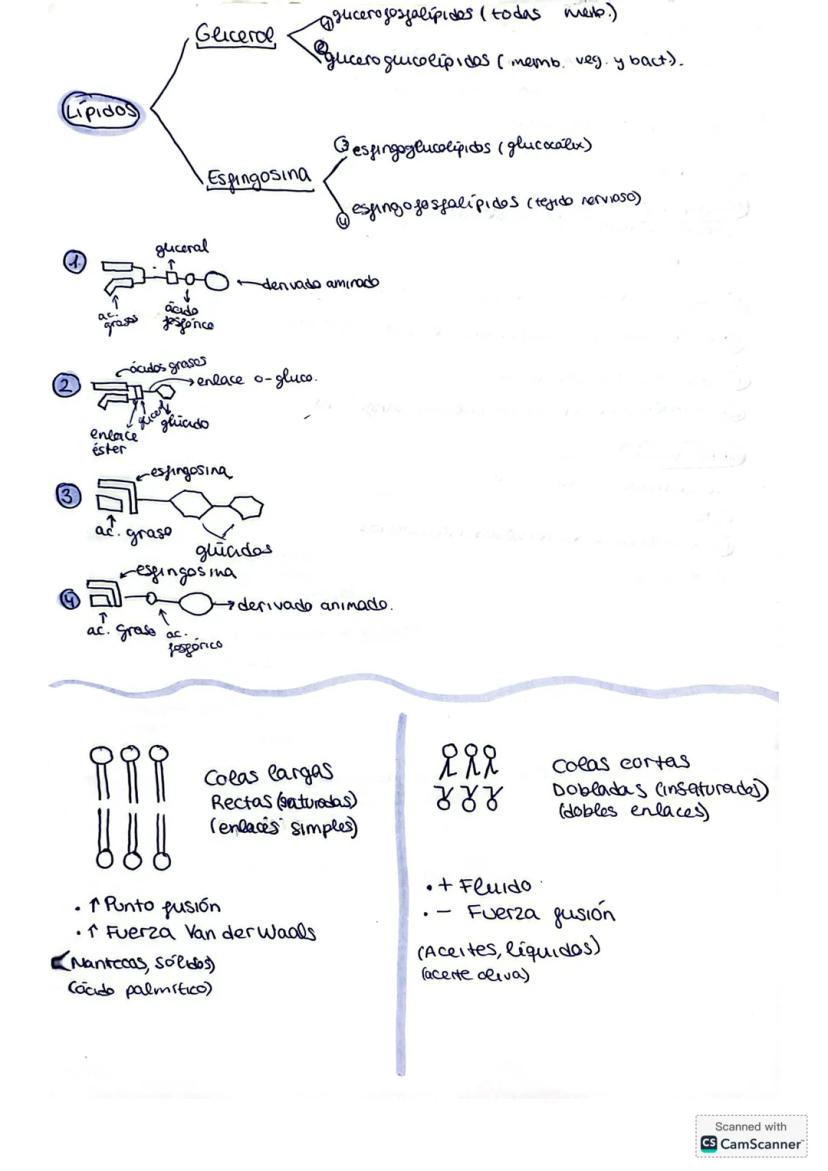 Lípidos
Glicerol
① glicerofosfolípidos (todas memb.)
② gliceroglucolípidos (memb. veg. y bact).
Espingosina
③ espingoglucolípidos (glucocálix)
④ espingofosfolípidos (tejido nervioso)
①
glicerol
derivado aminado
ac. grasos
ácido fosfórico
②
ácidos grasos
enlace o-gluco.
glicerol
glúcido
enlace éster
③
espingosina
ac. graso
glúcidos
④
espingosina
derivado animado.
ac. graso
ac. fosfórico
Colas largas
Rectas (saturadas)
(enlaces simples)
• ↑ Punto fusión
• ↑ Fuerza Van der Waals
(Mantecas, sólidos)
(ácido palmítico)
Colas cortas
Dobladas (insaturadas)
(dobles enlaces)
• + Fluido
• - Fuerza fusión
(Aceites, líquidos)
(aceite oliva)
Scanned with
CS CamScanner